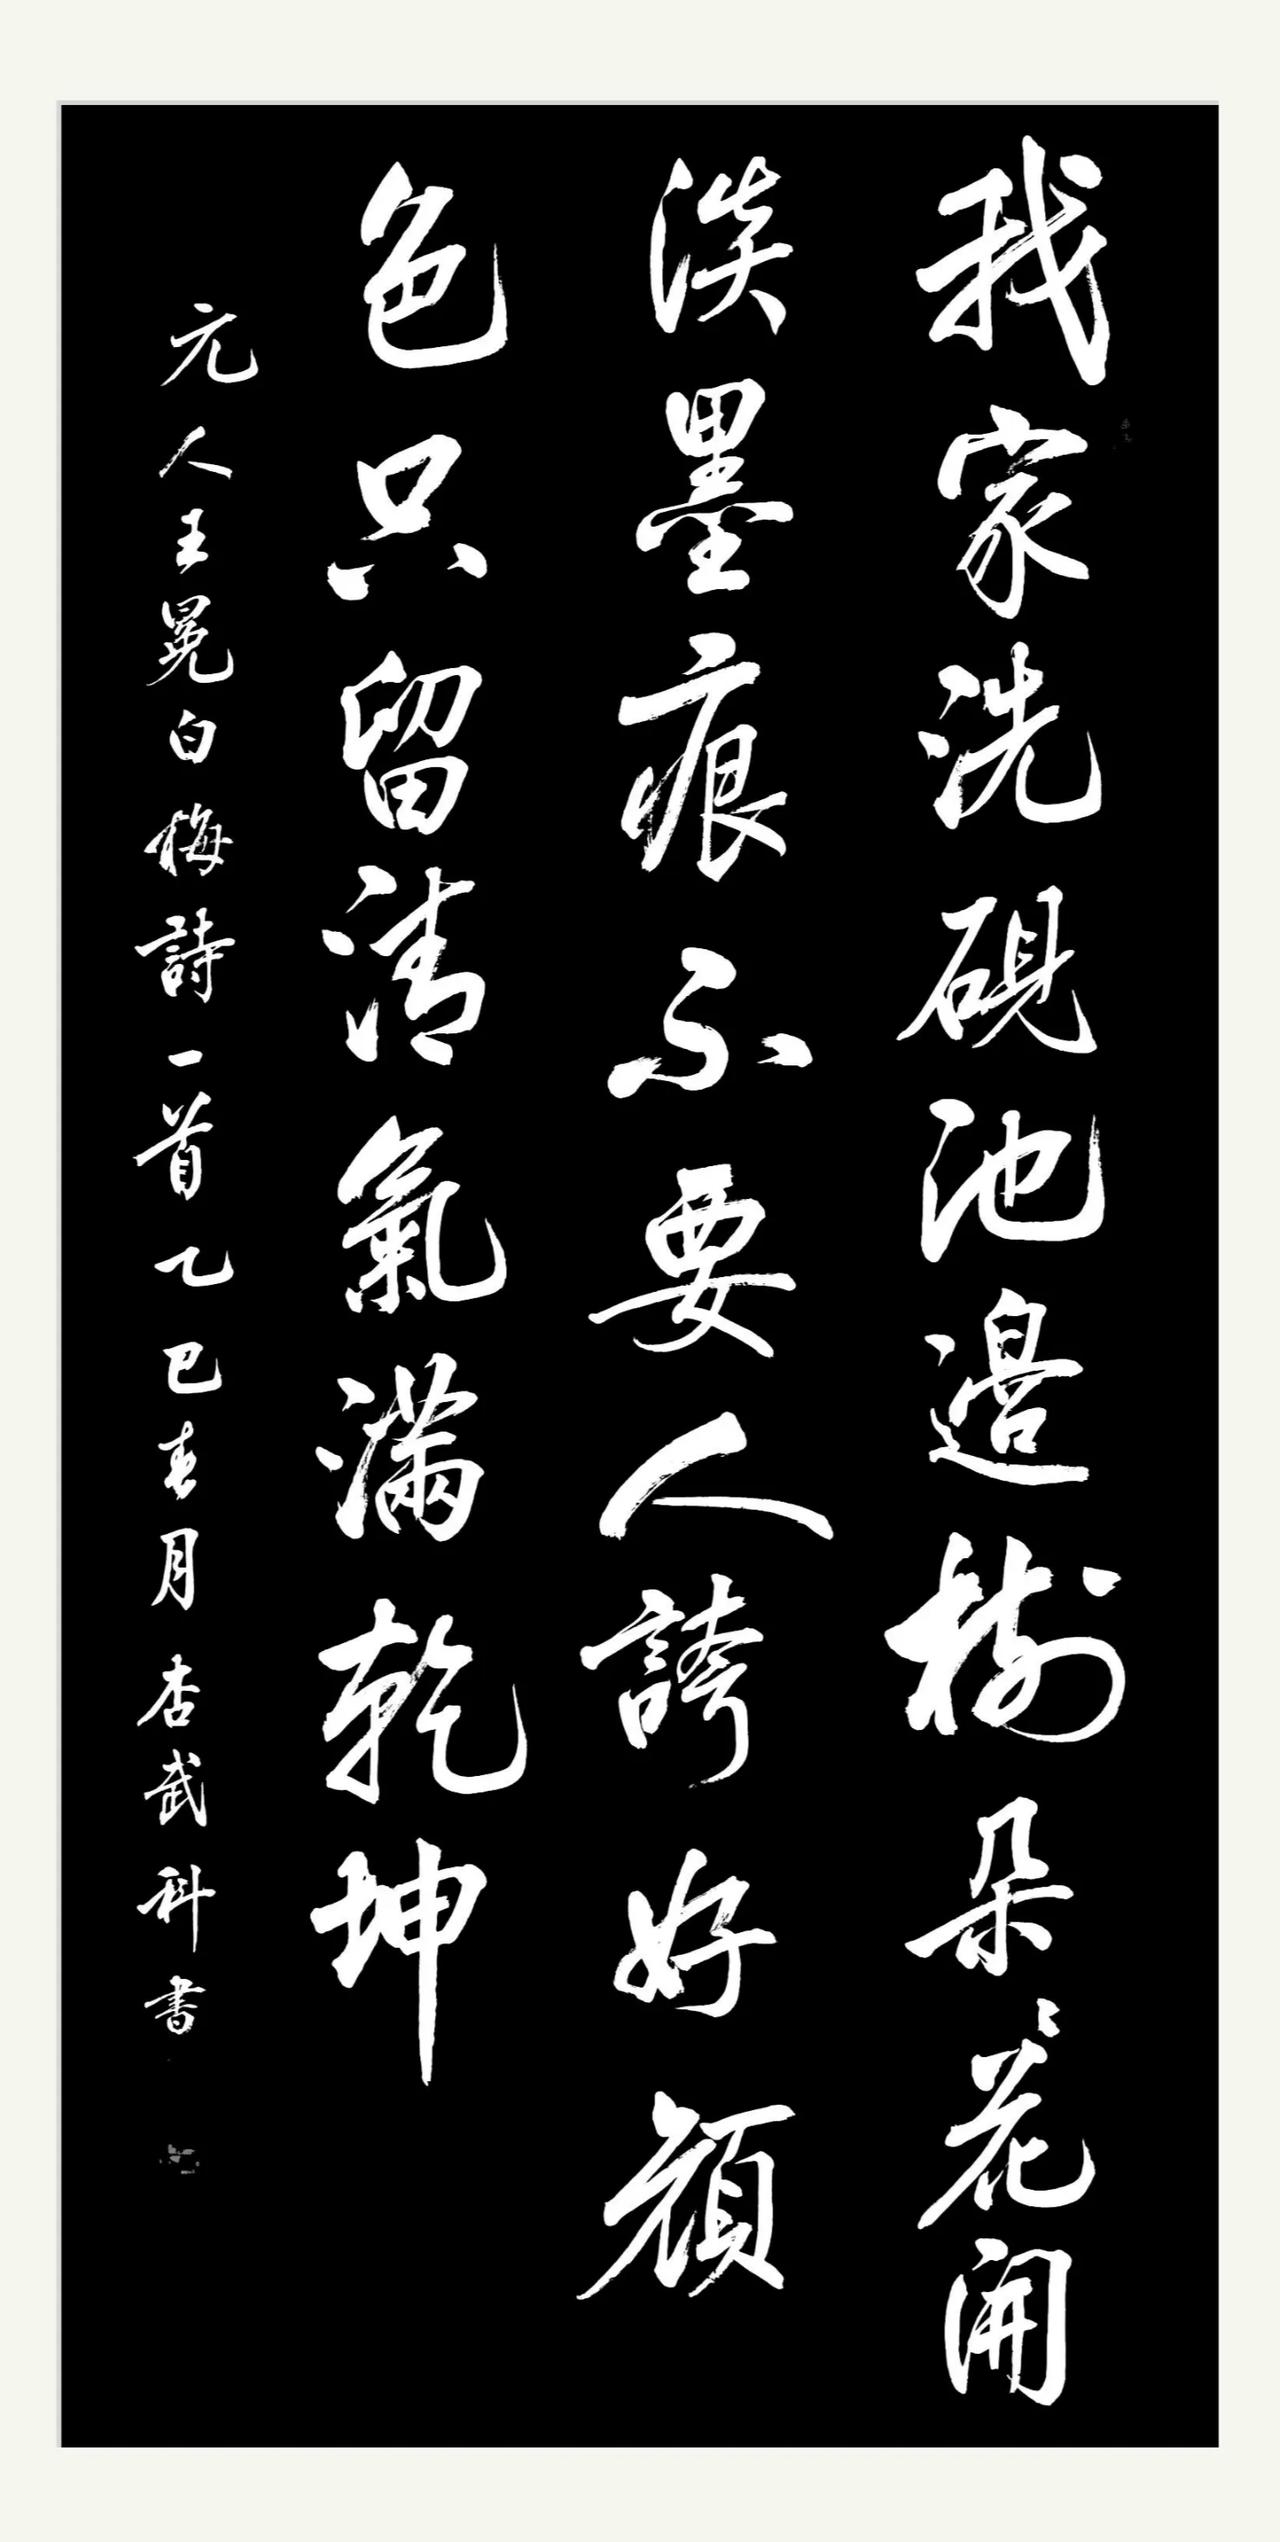 我家洗硯池邊樹朵〻花開
淡墨痕不要人誇好顏
色只留清氣滿乾坤
元人王冕白梅詩一首乙巳春月杏武科書